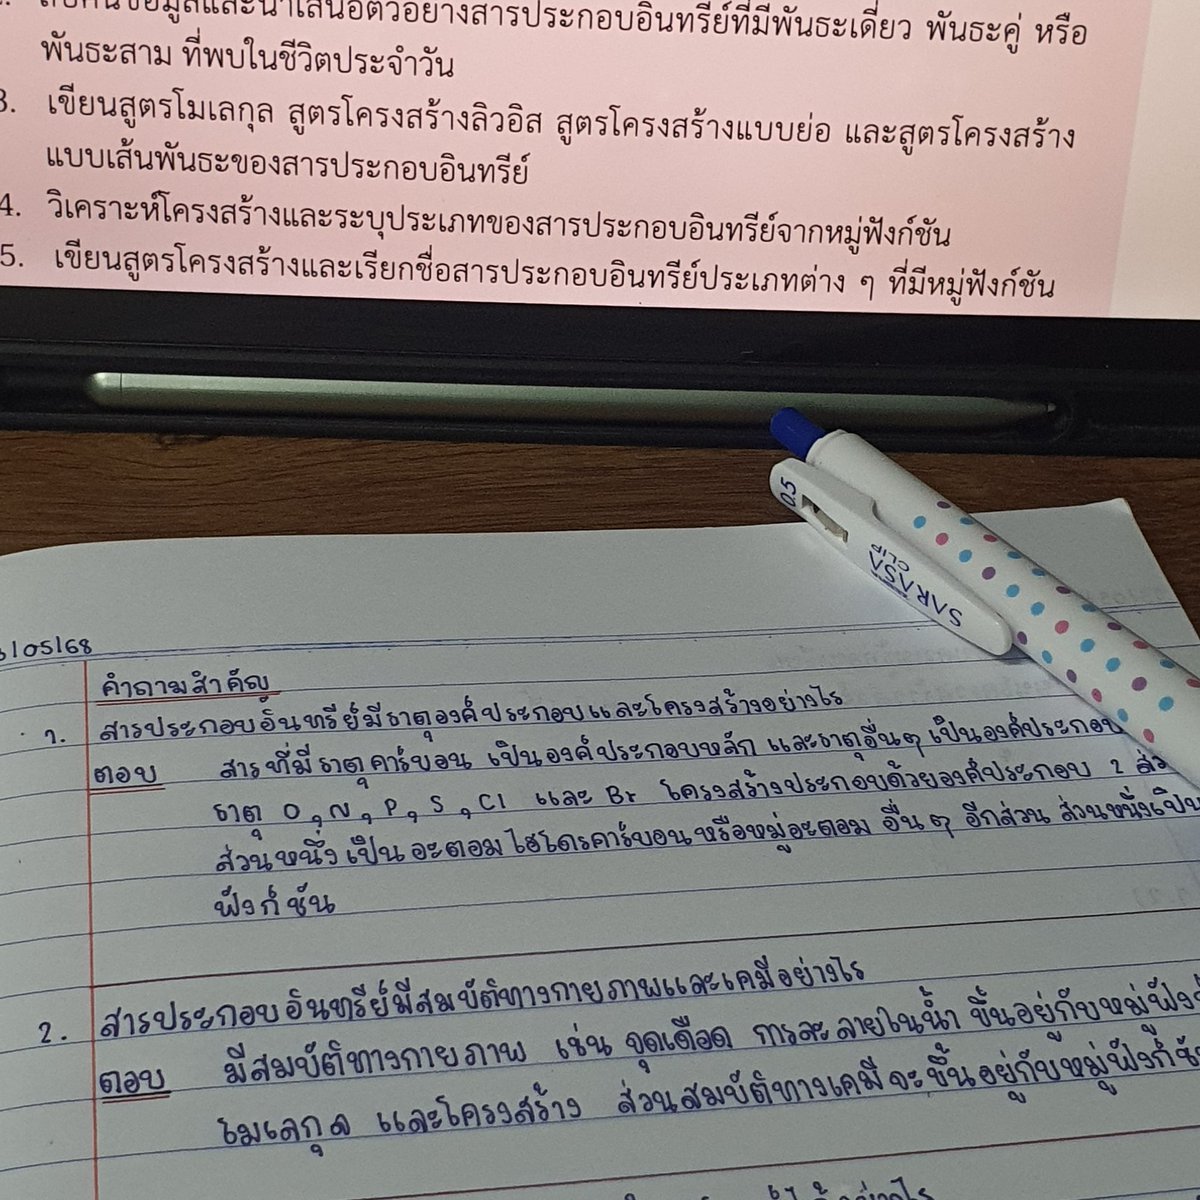 สืบค้นข้อมูลและนำเสนอตัวอย่างสารประกอบอินทรีย์ที่มีพันธะเดี่ยว พันธะคู่ หรือ
พันธะสาม ที่พบในชีวิตประจำวัน
3. เขียนสูตรโมเลกุล สูตรโครงสร้างลิวอิส สูตรโครงสร้างแบบย่อ และสูตรโครงสร้าง
แบบเส้นพันธะของสารประกอบอินทรีย์
4. วิเคราะห์โครงสร้างและระบุประเภทของสารประกอบอินทรีย์จากหมู่ฟังก์ชัน
5. เขียนสูตรโครงสร้างและเรียกชื่อสารประกอบอินทรีย์ประเภทต่าง ๆ ที่มีหมู่ฟังก์ชัน
0.5
SARASA
CLIP
/05/68
คำถามสำคัญ
1. สารประกอบอินทรีย์มีธาตุองค์ประกอบและโครงสร้างอย่างไร
ตอบ สารที่มีธาตุคาร์บอน เป็นองค์ประกอบหลัก และธาตุอื่นๆ เป็นองค์ประกอบ
ธาตุ O, N, P, S, Cl และ Br โครงสร้างประกอบด้วยองค์ประกอบ 2 ส่วน
ส่วนหนึ่งเป็นอะตอมไฮโดรคาร์บอนหรือหมู่อะตอม อื่นๆ อีกส่วน ส่วนหนึ่งเป็น
ฟังก์ชัน
2. สารประกอบอินทรีย์มีสมบัติทางกายภาพและเคมีอย่างไร
ตอบ มีสมบัติทางกายภาพ เช่น จุดเดือด การละลายในน้ำ ขึ้นอยู่กับหมู่ฟังก์
โมเลกุล และโครงสร้าง ส่วนสมบัติทางเคมีจะขึ้นอยู่กับหมู่ฟังก์ชัน